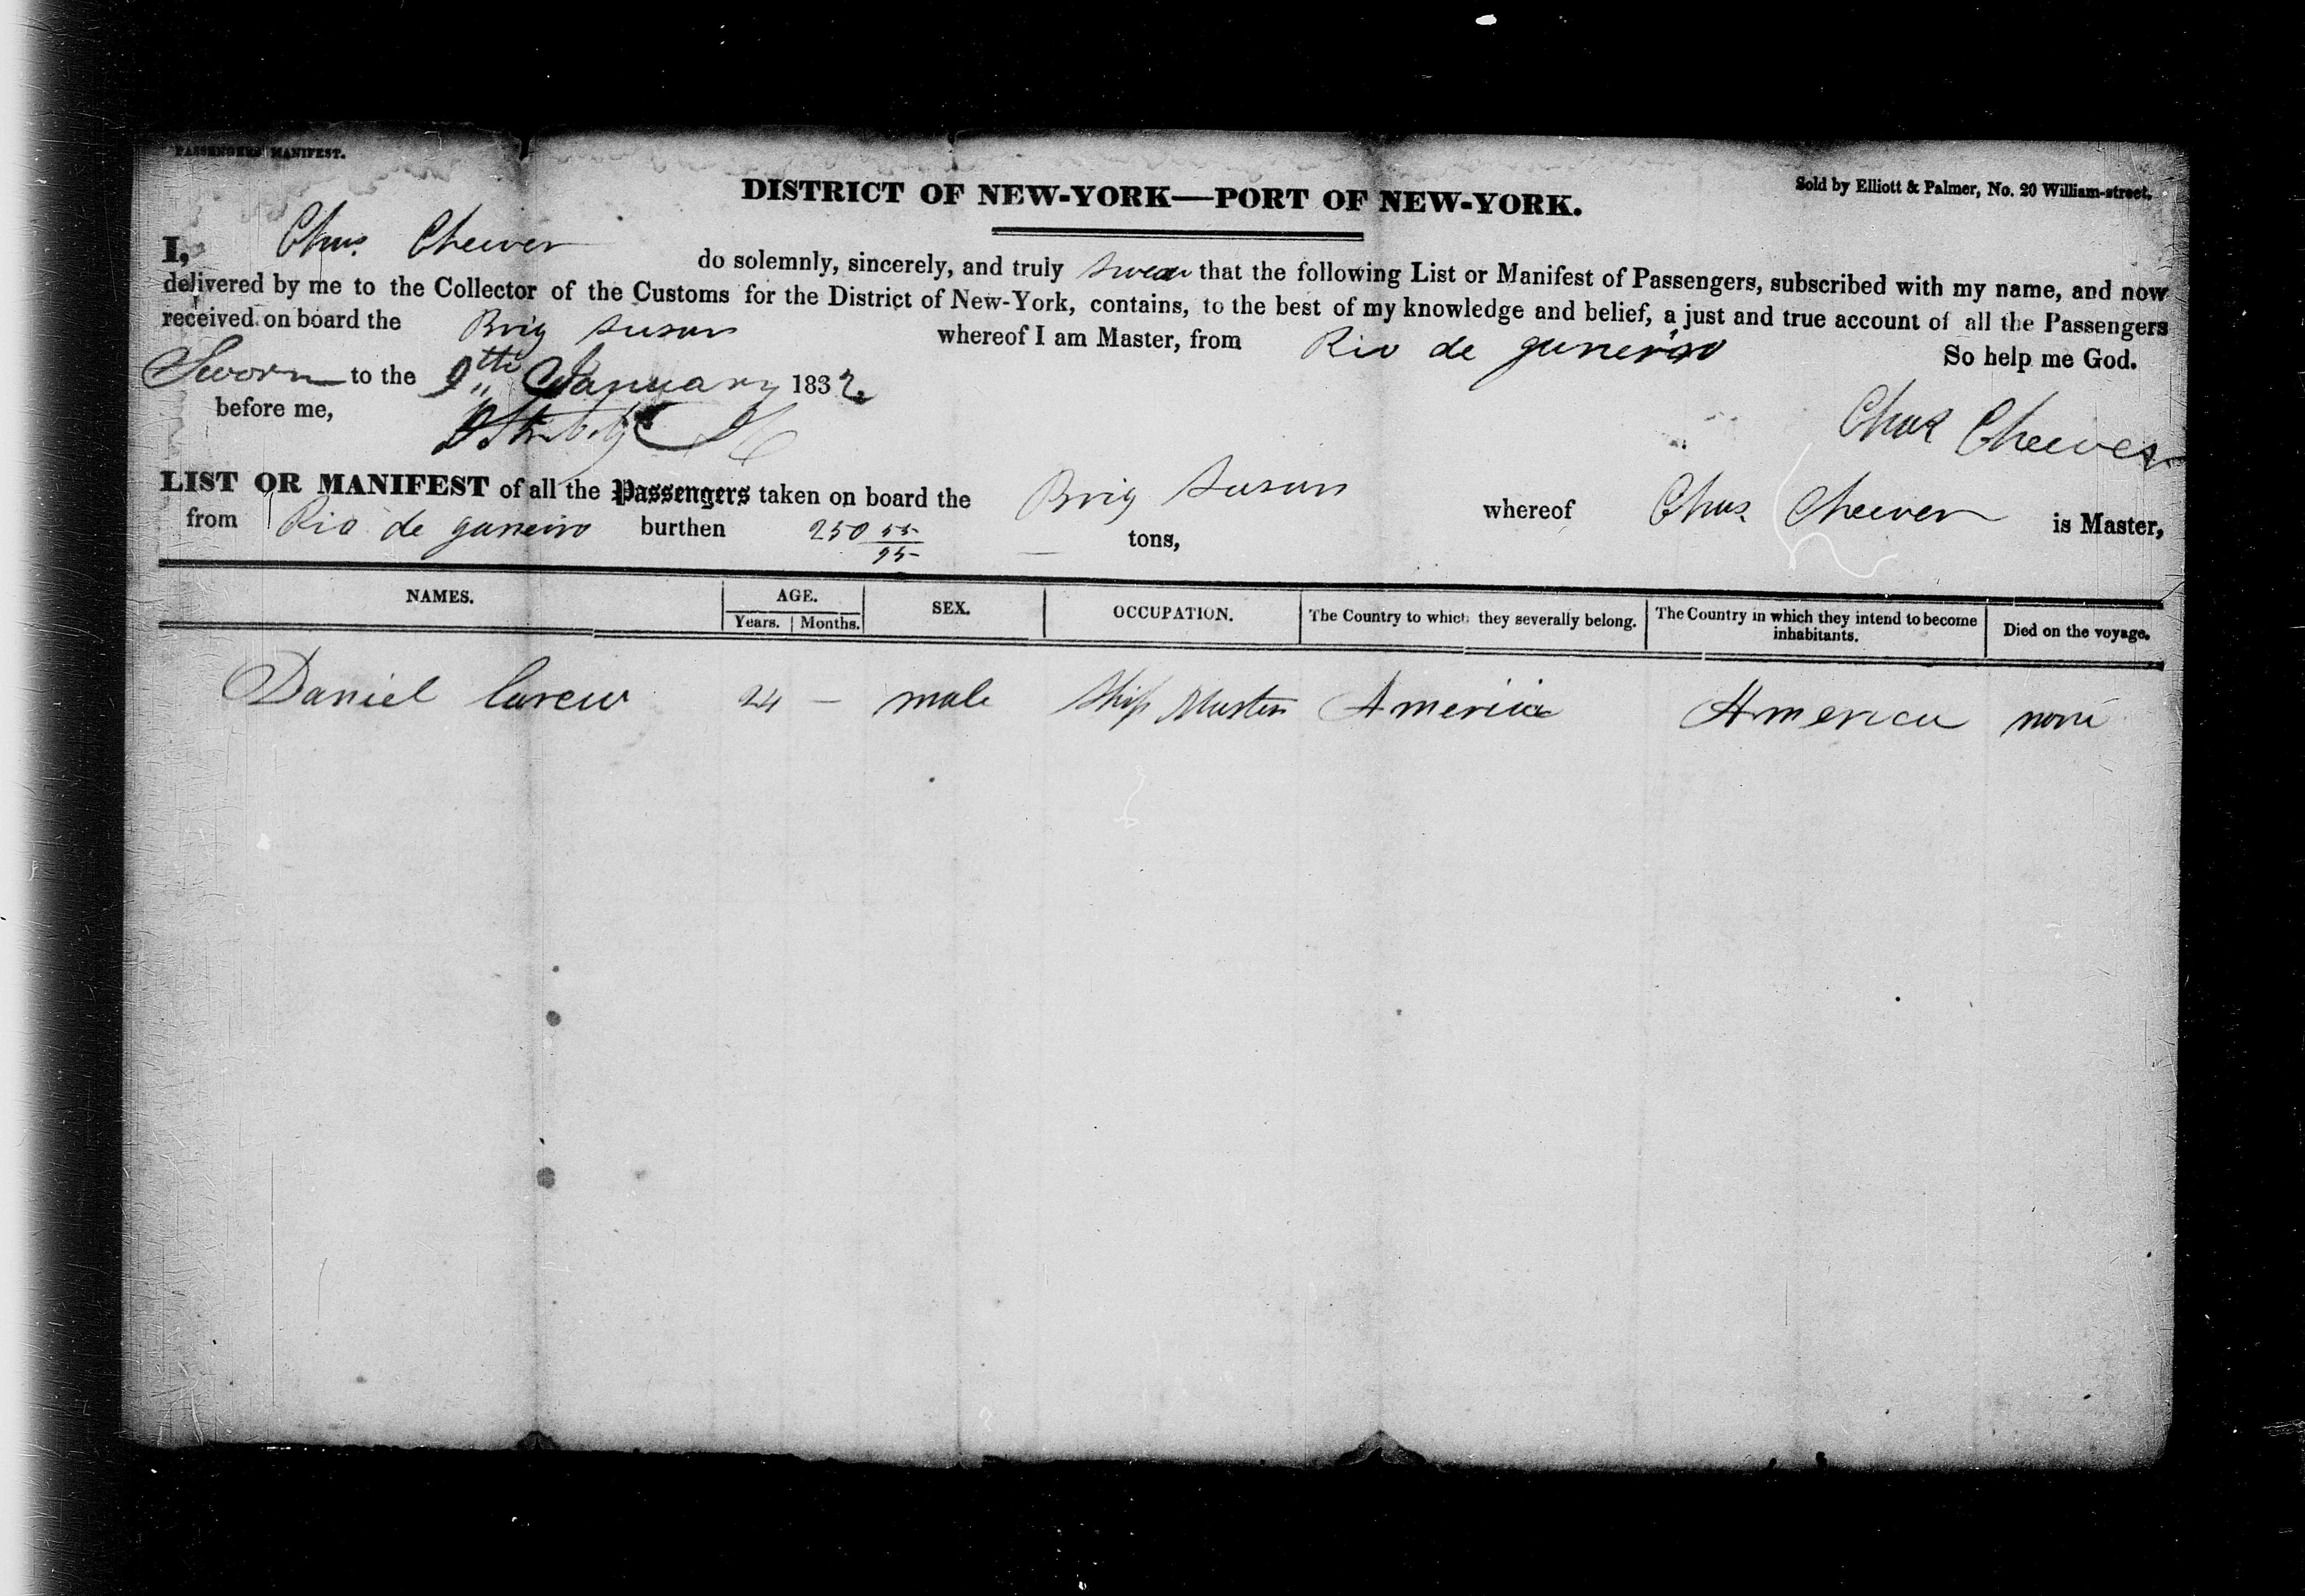 PASSENGERS' MANIFEST.
DISTRICT OF NEW-YORK—PORT OF NEW-YORK.
Sold by Elliott & Palmer, No. 20 William-street.
I, Chas. Cheever do solemnly, sincerely, and truly swear that the following List or Manifest of Passengers, subscribed with my name, and now
delivered by me to the Collector of the Customs for the District of New-York, contains, to the best of my knowledge and belief, a just and true account of all the Passengers
received on board the Brig Susan whereof I am Master, from Rio de ganeiro So help me God.
Sworn to the 9th January 1832.
before me,
Chas Cheever
LIST OR MANIFEST of all the Passengers taken on board the Brig Susan whereof Chas. Cheever is Master,
from Rio de ganeiro burthen 250 55/95 tons,
NAMES. AGE. SEX. OCCUPATION. The Country to which they severally belong. The Country in which they intend to become inhabitants. Died on the voyage.
Years. Months.
Daniel Carew 24 — male Ship Master America America none